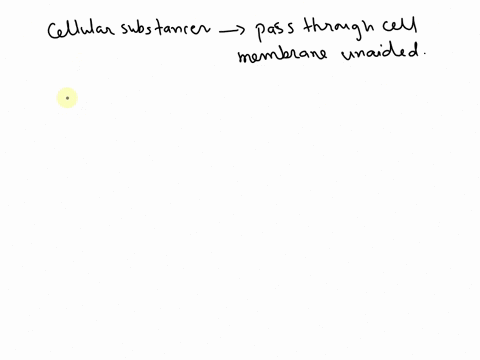 cellular substancer → pass through cell
membrane unaided.